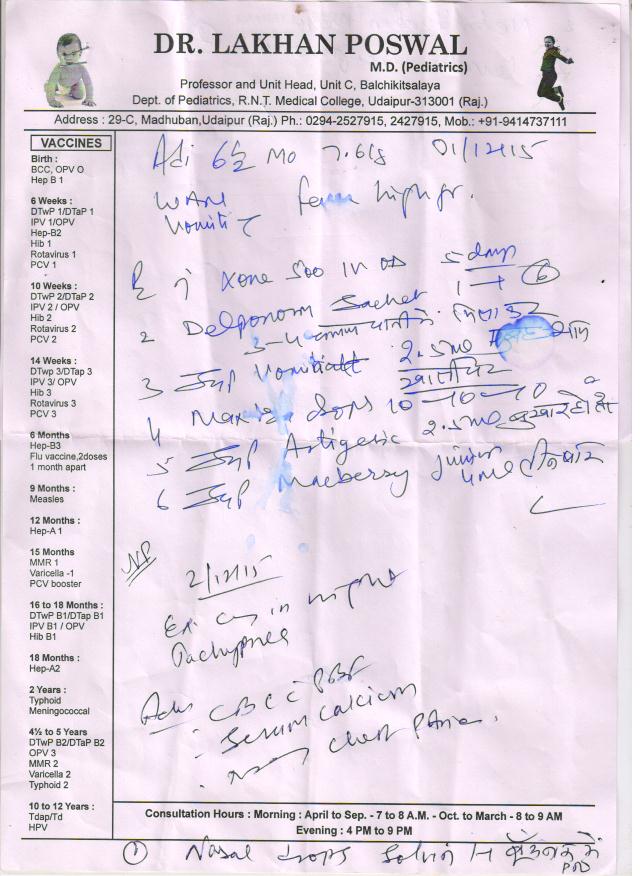 DR. LAKHAN POSWAL
M.D. (Pediatrics)
Professor and Unit Head, Unit C, Balchikitsalaya
Dept. of Pediatrics, R.N.T. Medical College, Udaipur-313001 (Raj.)
Address : 29-C, Madhuban,Udaipur (Raj.) Ph.: 0294-2527915, 2427915, Mob.: +91-9414737111
VACCINES
Birth :
BCC, OPV O
Hep B 1
6 Weeks :
DTwP 1/DTaP 1
IPV 1/OPV
Hep-B2
Hib 1
Rotavirus 1
PCV 1
10 Weeks :
DTwP 2/DTaP 2
IPV 2 / OPV
Hib 2
Rotavirus 2
PCV 2
14 Weeks :
DTwp 3/DTap 3
IPV 3/ OPV
Hib 3
Rotavirus 3
PCV 3
6 Months
Hep-B3
Flu vaccine,2doses
1 month apart
9 Months :
Measles
12 Months :
Hep-A 1
15 Months
MMR 1
Varicella -1
PCV booster
16 to 18 Months :
DTwP B1/DTap B1
IPV B1 / OPV
Hib B1
18 Months :
Hep-A2
2 Years :
Typhoid
Meningococcal
4½ to 5 Years
DTwP B2/DTaP B2
OPV 3
MMR 2
Varicella 2
Typhoid 2
10 to 12 Years :
Tdap/Td
HPV
Adi 6½ Mo 01/12/15
high gr.
Xone 500 5 days
2 Sachet
3 Syp 2.5ml
4 drops 10-10-10
5 Syp 2.5ml
6 Syp Junior 4ml
2/12/15
in night
Tachypnea
CBC C PBF
Serum Calcium
Consultation Hours : Morning : April to Sep. - 7 to 8 A.M. - Oct. to March - 8 to 9 AM
Evening : 4 PM to 9 PM
① Nasal drops Solvin